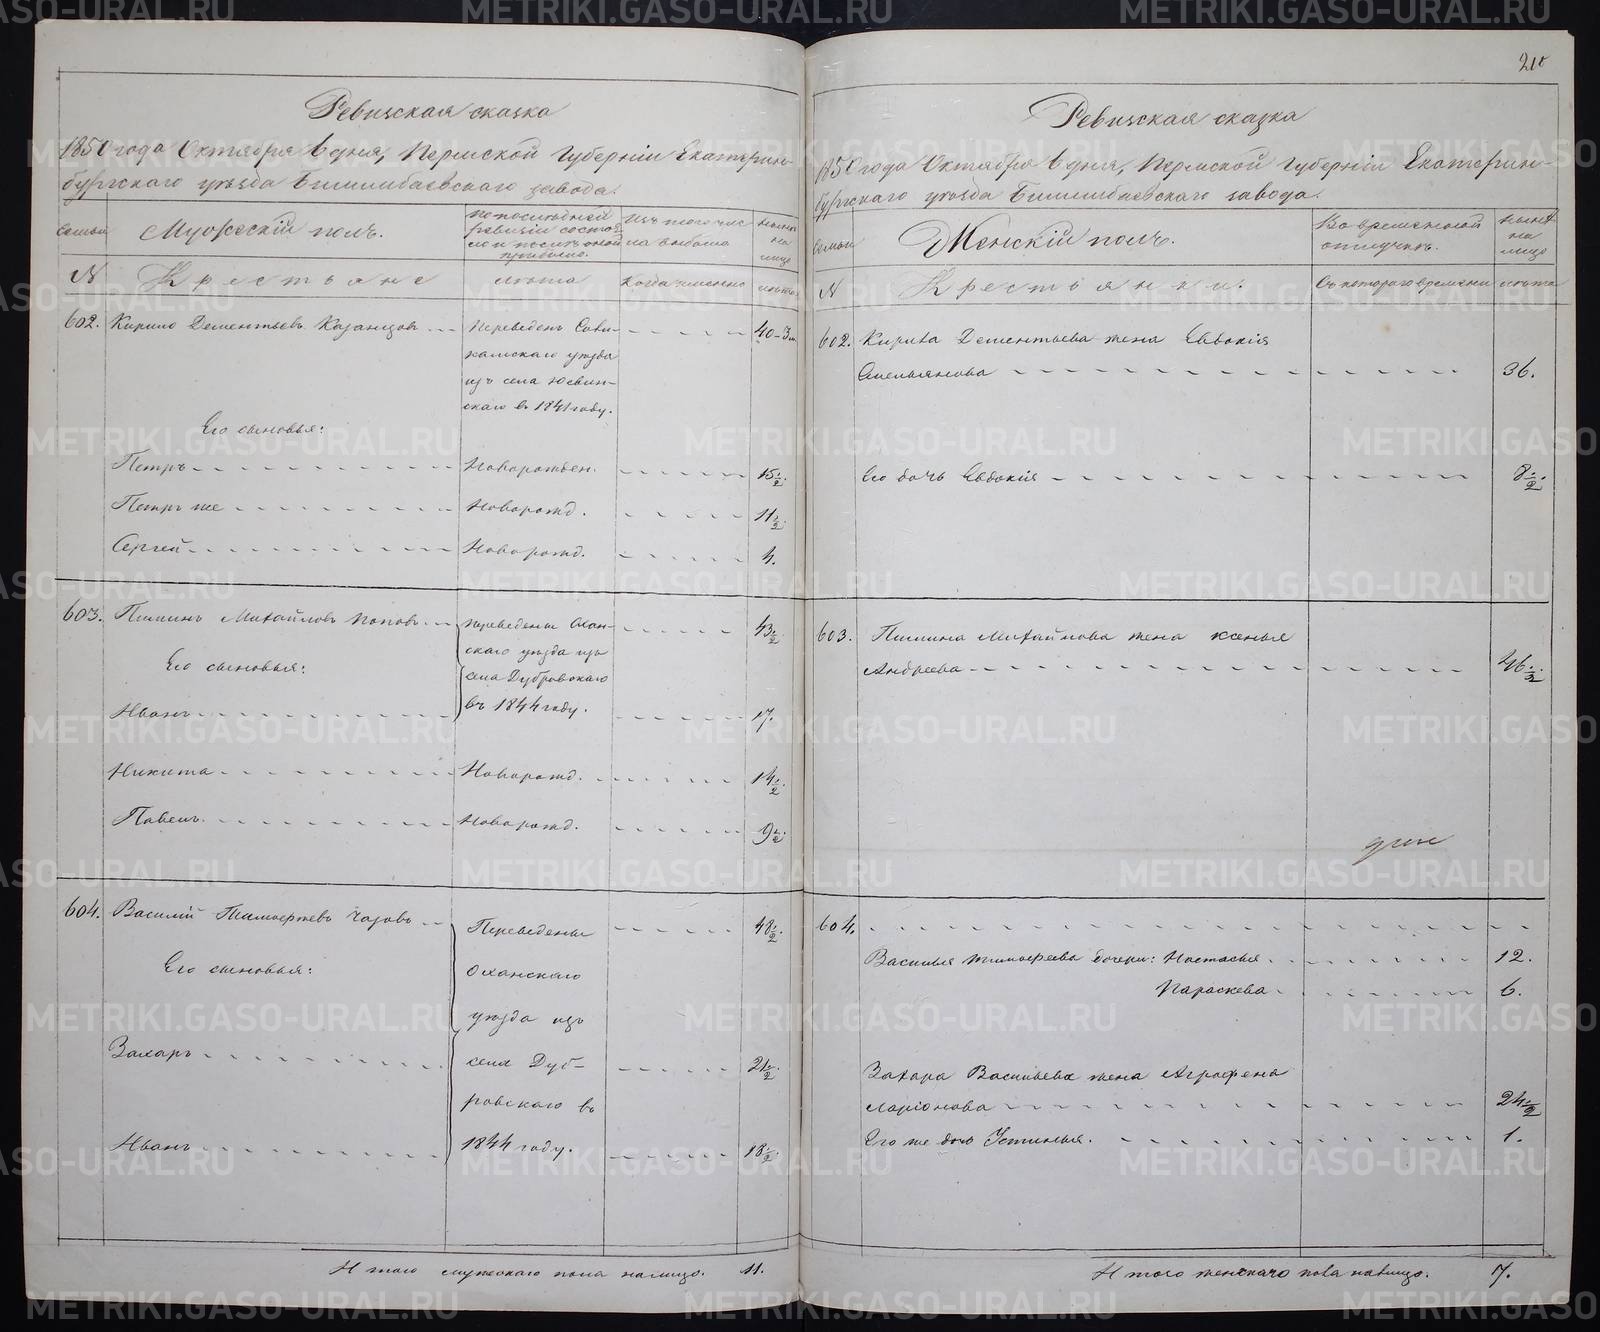 Ревизская сказка
1850 года Октября 6 дня, Пермской Губерніи Екатерин-
бургскаго уѣзда Билимбаевскаго завода.
семьи
Мужескій полъ.
по послѣдней ревизіи состояло и послѣ оной прибыло.
Изъ того числа выбыло
нынѣ на лицо
N
Крестьяне
лѣта
Когда именно
лѣта
602. Кирило Дементьевъ Казанцовъ
Переведенъ Соли-
камскаго уѣзда
изъ села Юсвин-
скаго въ 1841 году.
40-3 м.
Его сыновья:
Петръ Новорожден. 15 1/2.
Петръ же Новорожд. 11 1/2.
Сергей Новорожд. 4.
603. Пиминъ Михайловъ Поповъ
переведены Охан-
скаго уѣзда изъ
села Дубровскаго
въ 1844 году.
43 1/2
Его сыновья:
Иванъ 17.
Никита Новорожд. 14 1/2.
Павелъ Новорожд. 9 1/2
604. Василій Тимофеевъ Чазовъ
Переведены
Оханскаго
уѣзда изъ
села Дуб-
ровскаго въ
1844 году.
48 1/2.
Его сыновья:
Захаръ 21 1/2.
Иванъ 18 1/2.
Итого мужескаго пола налицо. 11.
210
Ревизская сказка
1850 года Октября 6 дня, Пермской Губерніи Екатерин-
бургскаго уѣзда Билимбаевскаго завода.
семьи
Женскій полъ.
Во временной отлучкѣ.
нынѣ на лицо
N
Крестьянки.
Съ котораго времени
лѣта
602. Кирила Дементьева жена Евдокія
Емельянова 36.
Его дочь Евдокія 8 1/2.
603. Пимина Михайлова жена Ксенья
Андреева 46 1/2.
604.
Василья Тимофеева дочери: Настасья 12.
Параскева 6.
Захара Васильева жена Аграфена
Ларіонова 24 1/2
Его же дочь Устинья. 1.
Итого женскаго пола налицо. 7.
METRIKI.GASO-URAL.RU